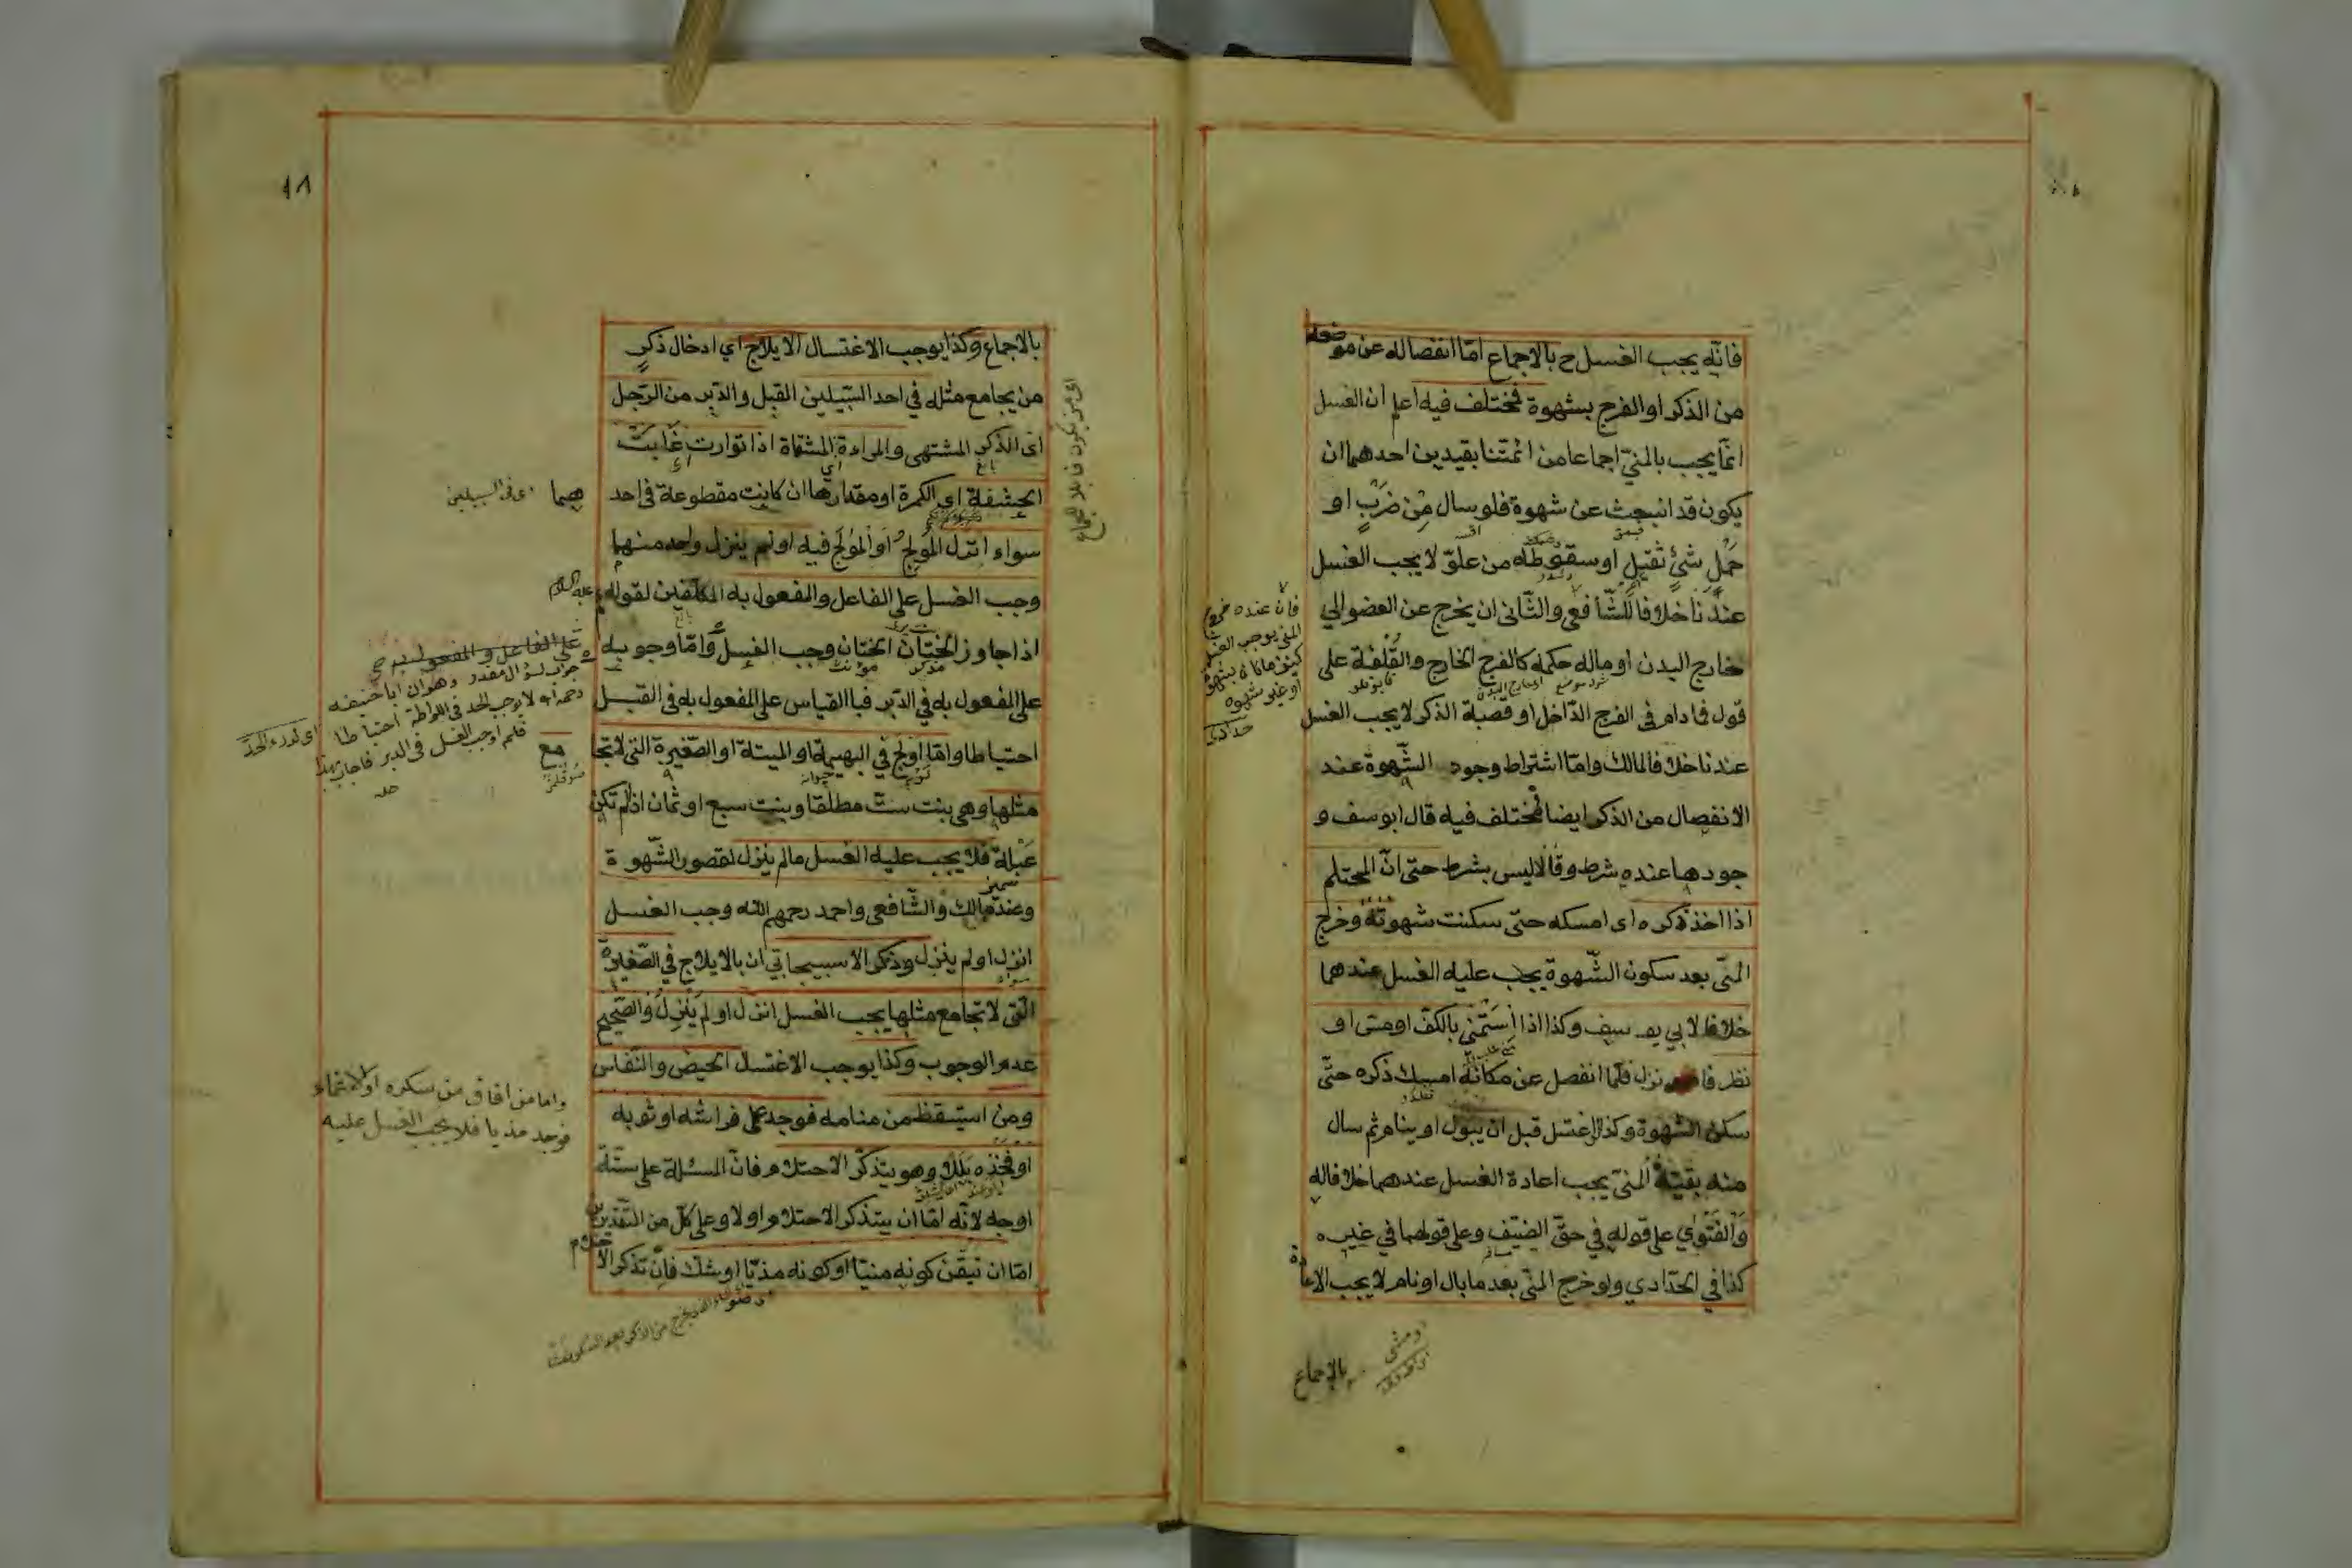 فانه يجب الغسل ح بالاجماع امّا انفصاله عن موضعه
من الذكر او الفرج بشهوة فمختلف فيه اعلم ان الغسل
انّما يجب بالمنيّ اجماعا من ائمتنا بقيدين احدهما ان
يكون قد انبعث عن شهوة فلو سال مِن ضَربٍ او
حَملِ شيءٍ ثقيلٍ او سقوطه من علوّ لا يجب الغسل
عندَنا خلافا للشّافعي والثّاني ان يخرج عن العضو الي
خارج البدن او ماله حكمه كالفرج الخارج والقُلفة على
قول فما دام في الفرج الدّاخل او قصبة الذكر لا يجب الغسل
عندنا خلافا لمالك وامّا اشتراط وجود الشّهوة عند
الانفصال من الذكر ايضا فمختلف فيه قال ابو سف و
جودها عنده شرط وقالا ليس بشرط حتى انّ المحتلم
اذا اخذ ذكره اى امسكه حتّى سكنت شهوته وخرج
المنّى بعد سكون الشّهوة يجب عليه الغسل عندهما
خلافا لابي يوسف وكذا اذا اِستَمنى بالكفّ او متى او
نظر فانزل فلمّا انفصل عن مكانه امسك ذكره حتّى
سكن الشهوة وكذا لو اغتسل قبل ان يبول او ينام ثم سال
منه بقيّة المنيّ يجب اعادة الغسل عندهما خلافا له
وَالفَتوٰي على قوله في حقّ الضّيف وعلى قولهما في غيره
كذا في الحدّادي ولو خرج المنّي بعد ما بال او نام لا يجب الاعادة
فانّ عنده خروج
المنى يوجب الغسل
كيف ما كان بشهوة
او غير شهوة
حدادى
بالاجماع
او مشى
١٨
بالاجماع وكذا يوجب الاغتسال الايلاج اي ادخال ذكرٍ
من يجامع مثله في احد السّبيلين القبل والدّبر من الرّجل
اى الذكر المشتهى والمراءة المشتهاة اذا توارت غابت
الحشفة اى الكمرة او مقدارها ان كانت مقطوعة في احد
سواء انزل المُولِج اَو المُولَج فيه او لم ينزل واحد منهما
وجب الغسل على الفاعل والمفعول به المكلّفين لقوله
اذا جاوز الختان الختان وجب الغسل وَامّا وجوبه
على المفعول به في الدّبر فبالقياس على المفعول به في القبل
احتياطا وامّا اولج في البهيمة او الميتة او الصّغيرة التى لا تجا
مثلها وهي بنت ستّ مطلقا وبنت سبع او ثمان اذا لم تكن
عَبلة فلا يجب عليه الغسل مالم ينزل لقصور الشّهوة
وعند مالك وَالشّافعي واحمد رحمهم اللّه وجب الغسل
انزل او لم ينزل وذكر الاسبيجابي ان بالايلاج في الصّغيرة
الّتى لا تجامع مثلها يجب الغسل انزل او لم يَنزِل والصّحيح
عدم الوجوب وكذا يوجب الاغتسل الحيض والنّفاس
ومن استيقظ من منامه فوجد على فراشه او ثوبه
او فخذه بَلَلا وهو يتذكّر الاحتلام فانّ المسئلة على ستّة
اوجه لانّه امّا ان يتذكر الاحتلام اولا وعلى كلّ من التّقديرين
امّا ان تيقّن كونه منيّا او كونه مذيّا او شك فان تذكر الاحتلام
اى من يكون قابلا للجماع
هما
اى فى السبيلين
عليه السلام
على الفاعل والمفعول به صح
جواب لسؤال مقدر وهو ان ابا حنيفه
رحمه الله لا يوجب الحد فى اللواطة احتياطا
فلم اوجب الغسل فى الدبر فاجاب بهذا
اى لدرء الحد
مع
واما من افاق من سكره او الاغماء
فوجد مذيا فلا يجب الغسل عليه